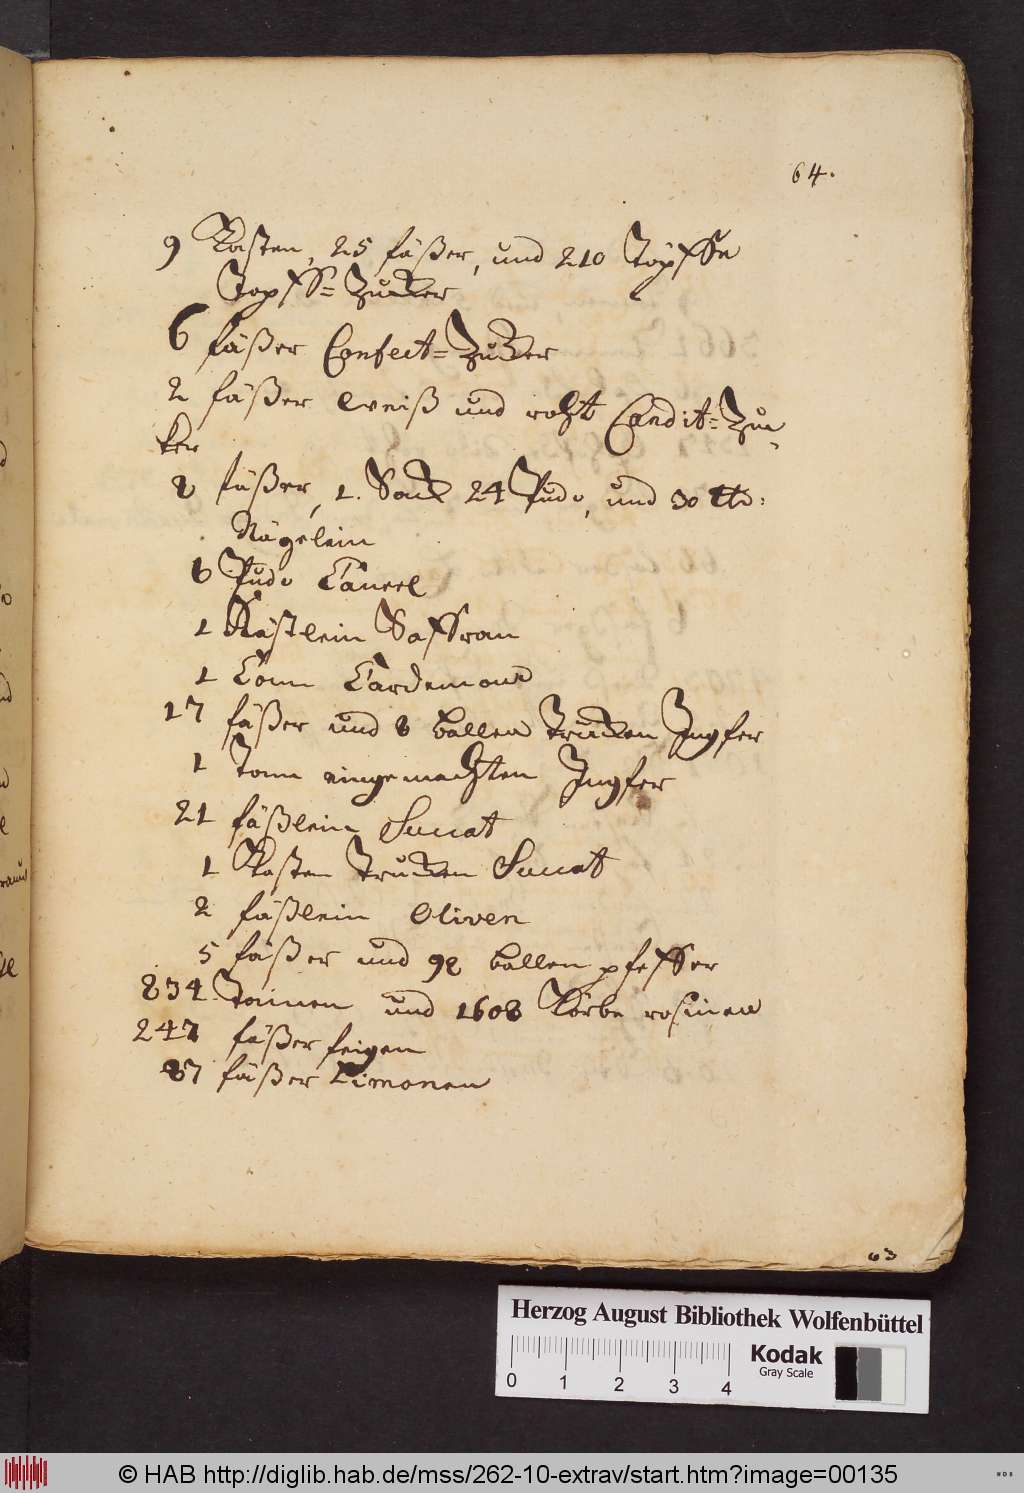 64.
9 Kasten, 25 fäßer, und 210 Töpffe
Topff= Zucker
6 fäßer Confect=Zucker
2 fäßer weiß und roht Candit=Zuc
ker
8 fäßer, 1. Sack 24 Pudo, und 30 ℔:
Nägelein
6 Pudo Caneel
1 Kästlein Saffran
1 Tonn Cardemom
17 fäßer und 8 ballen Trucken Ingfer
1 Tonn eingemachten Ingfer
21 fäßlein Succat
1 Kasten Trucken Succat
2 fäßlein Oliven
5 fäßer und 98 ballen pfeffer
834 Tonnen und 1608 Körbe rosinen
247 fäßer feigen
87 fäßer Limonen
63
Herzog August Bibliothek Wolfenbüttel
0 1 2 3 4
Kodak
Gray Scale
© HAB http://diglib.hab.de/mss/262-10-extrav/start.htm?image=00135